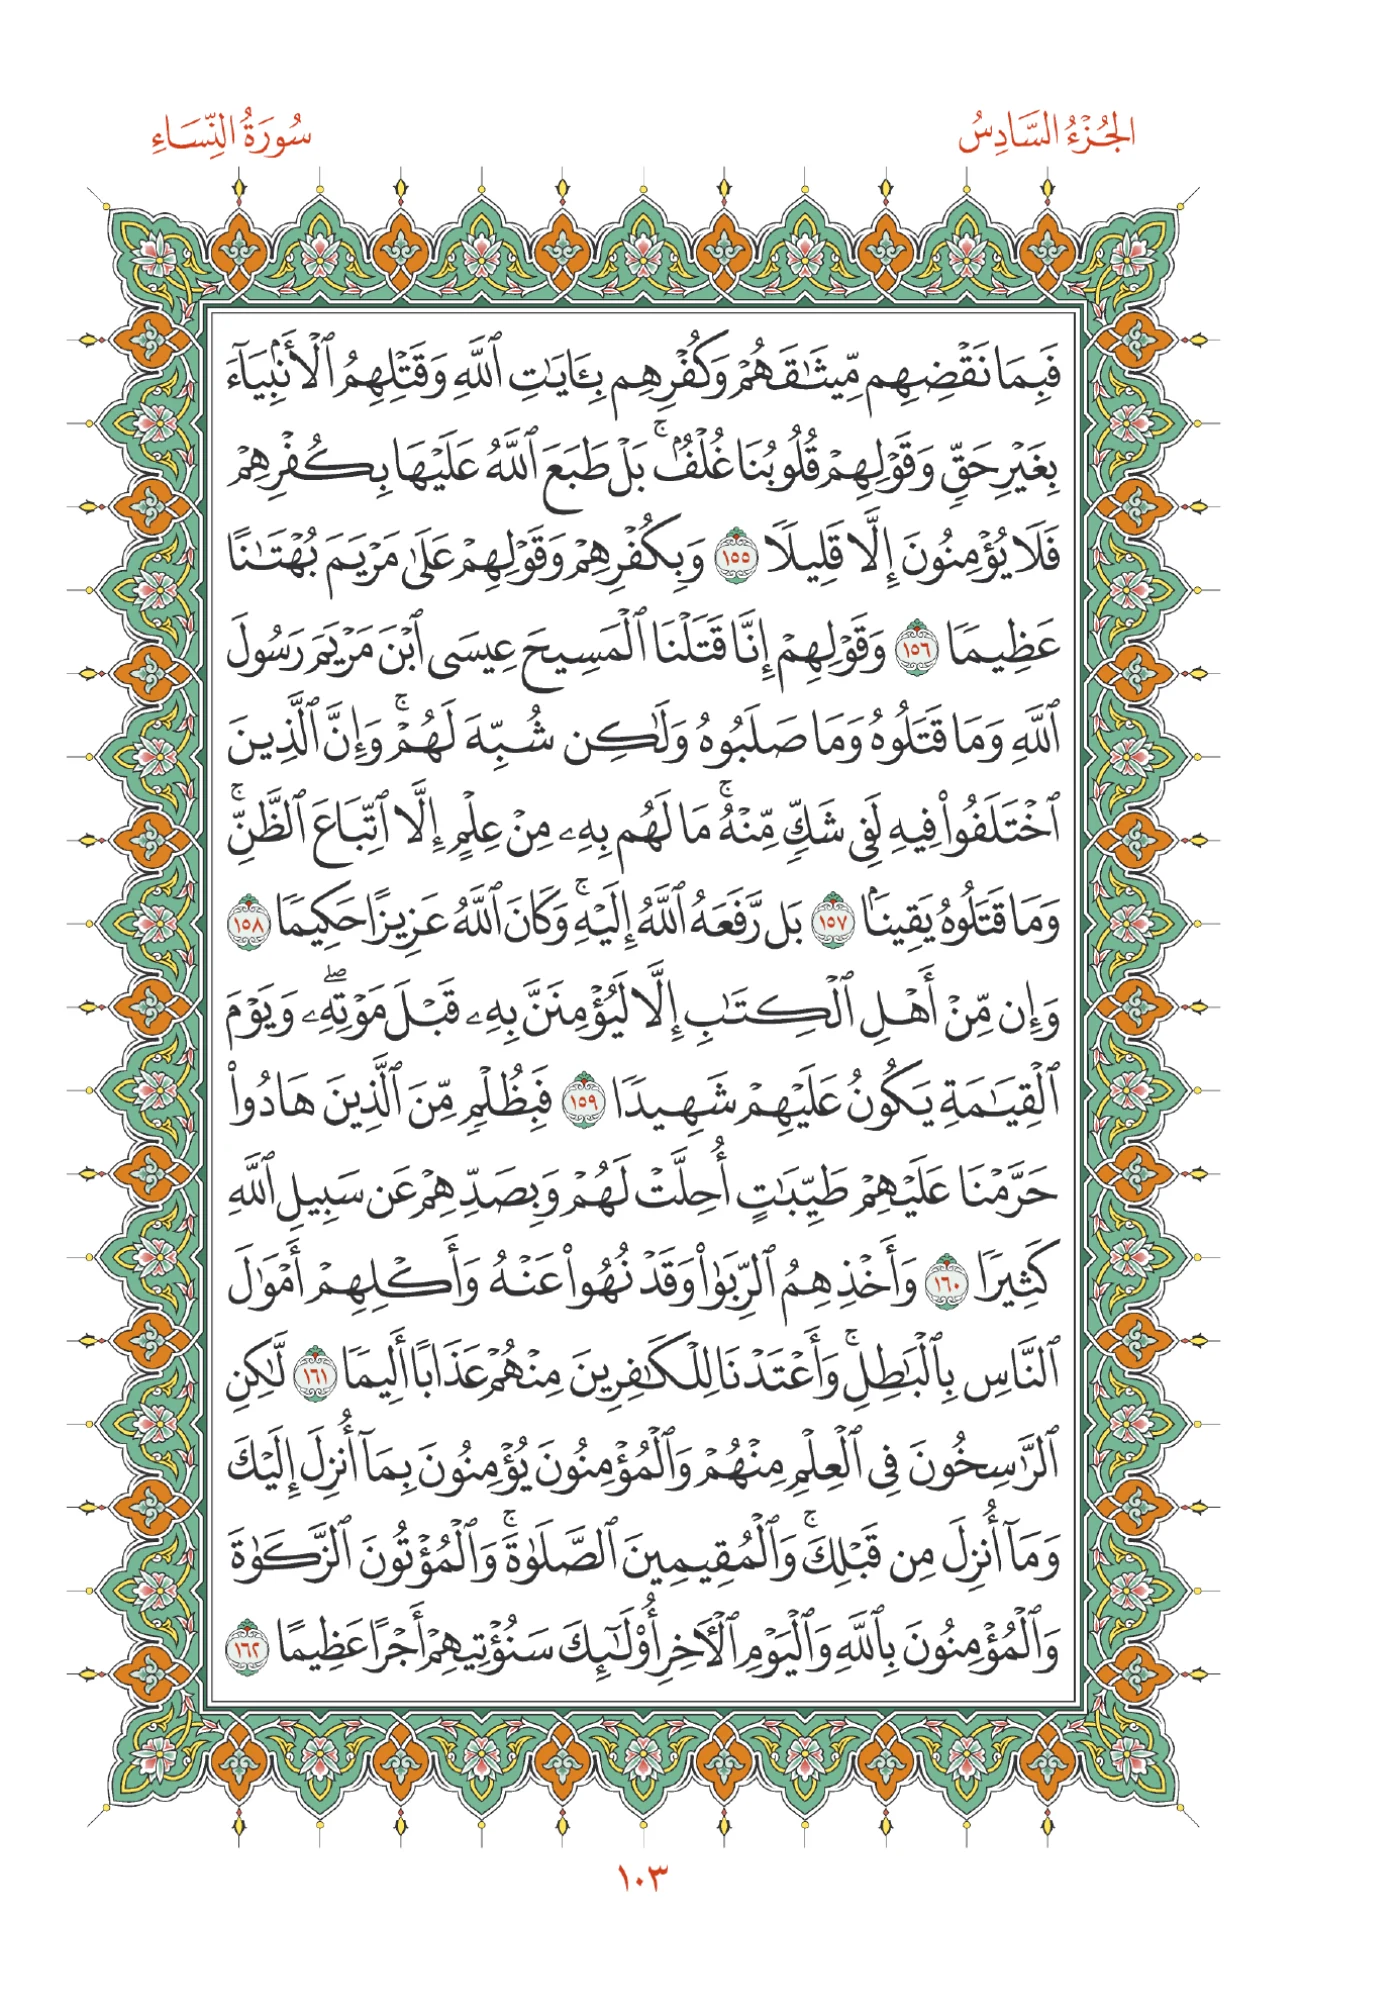 الجُزْءُ السَّادِسُ
سُورَةُ النِّسَاءِ
فَبِمَا نَقْضِهِم مِّيثَٰقَهُمْ وَكُفْرِهِم بِـَٔايَٰتِ ٱللَّهِ وَقَتْلِهِمُ ٱلْأَنۢبِيَآءَ
بِغَيْرِ حَقٍّ وَقَوْلِهِمْ قُلُوبُنَا غُلْفٌۢ ۚ بَلْ طَبَعَ ٱللَّهُ عَلَيْهَا بِكُفْرِهِمْ
فَلَا يُؤْمِنُونَ إِلَّا قَلِيلًا ١٥٥ وَبِكُفْرِهِمْ وَقَوْلِهِمْ عَلَىٰ مَرْيَمَ بُهْتَٰنًا
عَظِيمًا ١٥٦ وَقَوْلِهِمْ إِنَّا قَتَلْنَا ٱلْمَسِيحَ عِيسَى ٱبْنَ مَرْيَمَ رَسُولَ
ٱللَّهِ وَمَا قَتَلُوهُ وَمَا صَلَبُوهُ وَلَٰكِن شُبِّهَ لَهُمْ ۚ وَإِنَّ ٱلَّذِينَ
ٱخْتَلَفُوا۟ فِيهِ لَفِى شَكٍّ مِّنْهُ ۚ مَا لَهُم بِهِۦ مِنْ عِلْمٍ إِلَّا ٱتِّبَاعَ ٱلظَّنِّ ۚ
وَمَا قَتَلُوهُ يَقِينًۢا ١٥٧ بَل رَّفَعَهُ ٱللَّهُ إِلَيْهِ ۚ وَكَانَ ٱللَّهُ عَزِيزًا حَكِيمًا ١٥٨
وَإِن مِّنْ أَهْلِ ٱلْكِتَٰبِ إِلَّا لَيُؤْمِنَنَّ بِهِۦ قَبْلَ مَوْتِهِۦ ۖ وَيَوْمَ
ٱلْقِيَٰمَةِ يَكُونُ عَلَيْهِمْ شَهِيدًا ١٥٩ فَبِظُلْمٍ مِّنَ ٱلَّذِينَ هَادُوا۟
حَرَّمْنَا عَلَيْهِمْ طَيِّبَٰتٍ أُحِلَّتْ لَهُمْ وَبِصَدِّهِمْ عَن سَبِيلِ ٱللَّهِ
كَثِيرًا ١٦٠ وَأَخْذِهِمُ ٱلرِّبَوٰا۟ وَقَدْ نُهُوا۟ عَنْهُ وَأَكْلِهِمْ أَمْوَٰلَ
ٱلنَّاسِ بِٱلْبَٰطِلِ ۚ وَأَعْتَدْنَا لِلْكَٰفِرِينَ مِنْهُمْ عَذَابًا أَلِيمًا ١٦١ لَّٰكِنِ
ٱلرَّٰسِخُونَ فِى ٱلْعِلْمِ مِنْهُمْ وَٱلْمُؤْمِنُونَ يُؤْمِنُونَ بِمَآ أُنزِلَ إِلَيْكَ
وَمَآ أُنزِلَ مِن قَبْلِكَ ۚ وَٱلْمُقِيمِينَ ٱلصَّلَوٰةَ ۚ وَٱلْمُؤْتُونَ ٱلزَّكَوٰةَ
وَٱلْمُؤْمِنُونَ بِٱللَّهِ وَٱلْيَوْمِ ٱلْـَٔاخِرِ أُو۟لَٰٓئِكَ سَنُؤْتِيهِمْ أَجْرًا عَظِيمًا ١٦٢
١٠٣